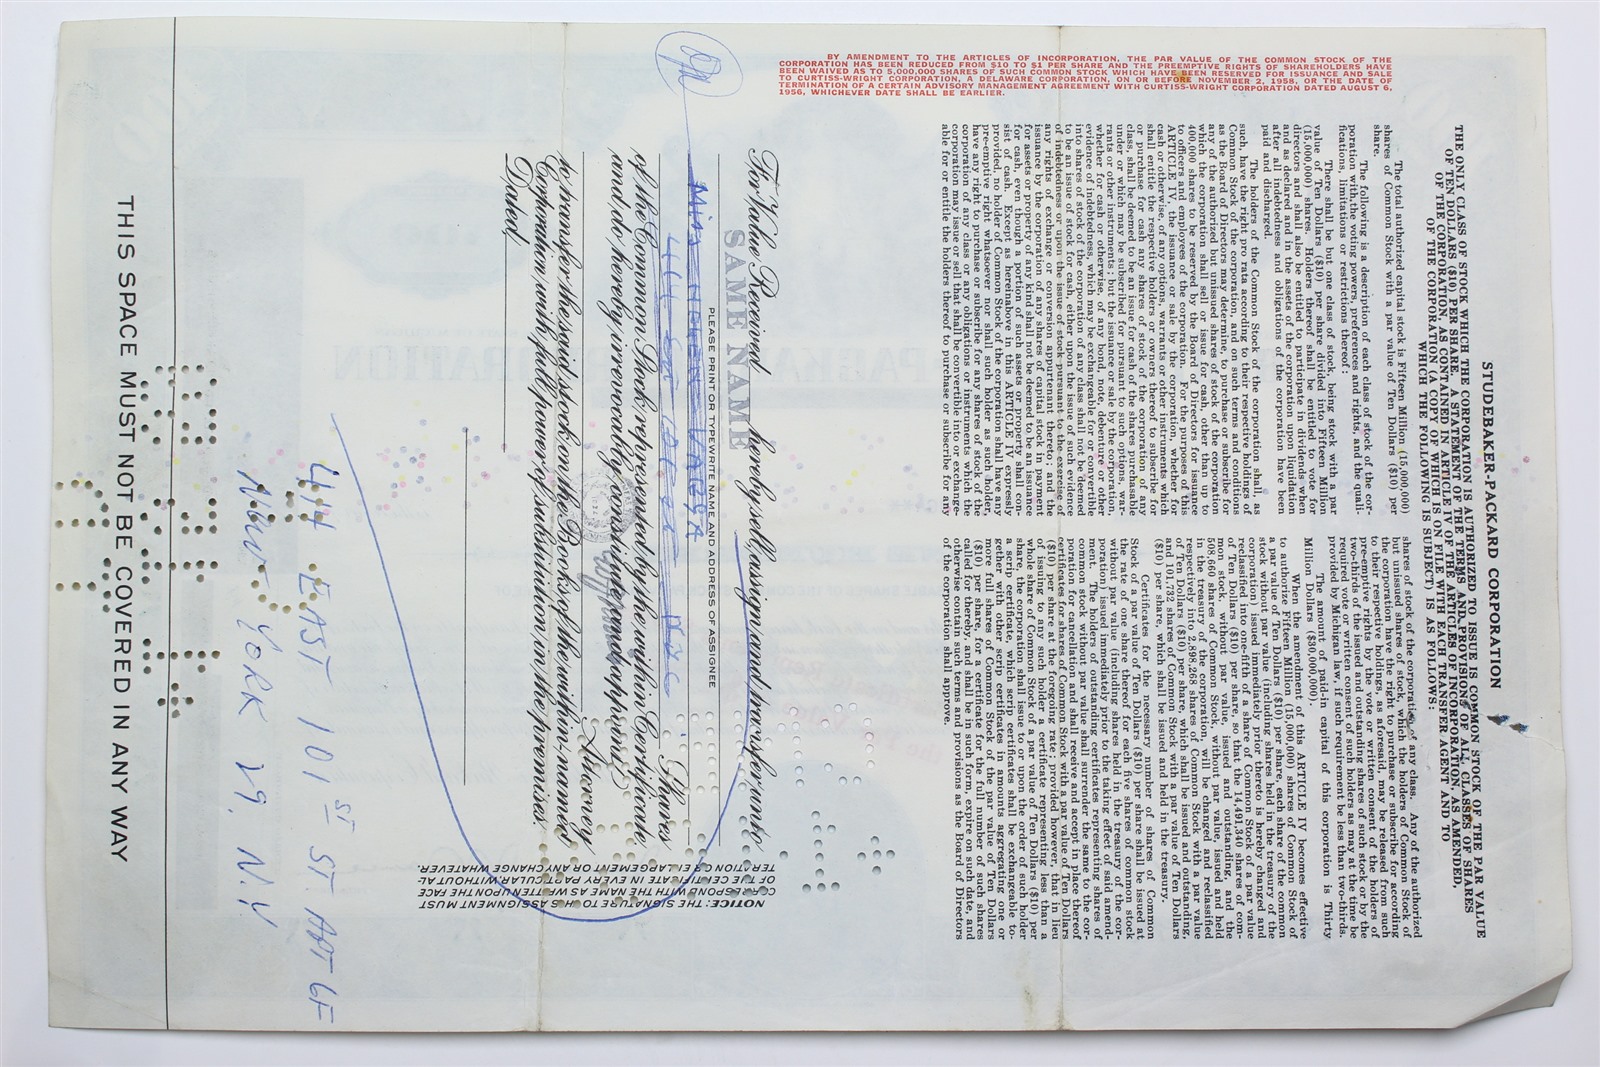 BY AMENDMENT TO THE ARTICLES OF INCORPORATION, THE PAR VALUE OF THE COMMON STOCK OF THE
CORPORATION HAS BEEN REDUCED FROM $10 TO $1 PER SHARE AND THE PREEMPTIVE RIGHTS OF SHAREHOLDERS HAVE
BEEN WAIVED AS TO 5,000,000 SHARES OF SUCH COMMON STOCK WHICH HAVE BEEN RESERVED FOR ISSUANCE AND SALE
TO CURTISS-WRIGHT CORPORATION, A DELAWARE CORPORATION, ON OR BEFORE NOVEMBER 2, 1958, OR THE DATE OF
TERMINATION OF A CERTAIN ADVISORY MANAGEMENT AGREEMENT WITH CURTISS-WRIGHT CORPORATION DATED AUGUST 6,
1956, WHICHEVER DATE SHALL BE EARLIER.
STUDEBAKER-PACKARD CORPORATION
THE ONLY CLASS OF STOCK WHICH THE CORPORATION IS AUTHORIZED TO ISSUE IS COMMON STOCK OF THE PAR VALUE
OF TEN DOLLARS ($10) PER SHARE. A STATEMENT OF THE TERMS AND PROVISIONS OF ALL CLASSES OF SHARES
OF THE CORPORATION, AS CONTAINED IN ARTICLE IV OF THE ARTICLES OF INCORPORATION, AS AMENDED,
OF THE CORPORATION (A COPY OF WHICH IS ON FILE WITH EACH TRANSFER AGENT AND TO
WHICH THE FOLLOWING IS SUBJECT) IS AS FOLLOWS:
The total authorized capital stock is Fifteen Million (15,000,000)
shares of Common Stock with a par value of Ten Dollars ($10) per
share.
The following is a description of each class of stock of the cor-
poration with the voting powers, preferences and rights, and the quali-
fications, limitations or restrictions thereof:
There shall be but one class of stock, being stock with a par
value of Ten Dollars ($10) per share divided into Fifteen Million
(15,000,000) shares. Holders thereof shall be entitled to vote for
directors and shall also be entitled to participate in dividends when
and as declared and in the assets of the corporation upon liquidation
after all indebtedness and obligations of the corporation have been
paid and discharged.
The holders of the Common Stock of the corporation shall, as
such, have the right pro rata according to their respective holdings of
Common Stock of the corporation, and on such terms and conditions
as the Board of Directors may determine, to purchase or subscribe for
any of the authorized but unissued shares of stock of the corporation
which the corporation shall sell or issue for cash, other than up to
400,000 shares to be reserved by the Board of Directors for issuance
to officers and employees of the corporation. For the purposes of this
ARTICLE IV, the issuance or sale by the corporation, whether for
cash or otherwise, of any options, warrants or other instruments which
shall entitle the respective holders or owners thereof to subscribe for
or purchase for cash any shares of stock of the corporation of any
class, shall be deemed to be an issue for cash of the shares purchasable
under or which may be subscribed for pursuant to such options, war-
rants or other instruments; but the issuance or sale by the corporation,
whether for cash or otherwise, of any bond, note, debenture or other
evidence of indebtedness, which may be exchangeable for or convertible
into shares of stock of the corporation of any class shall not be deemed
to be an issue of stock for cash, either upon the issue of such evidence
of indebtedness or upon the issue of stock pursuant to the exercise of
any rights of exchange or conversion appurtenant thereto; and the
issuance by the corporation of any shares of capital stock in payment
for assets or property of any kind shall not be deemed to be an issuance
for cash, even though a portion of such assets or property shall con-
sist of cash. Except as hereinabove in this ARTICLE IV expressly
provided, no holder of Common Stock of the corporation shall have any
pre-emptive right whatsoever nor shall such holder, as such holder,
have any right to purchase or subscribe for any shares of stock of the
corporation of any class or any obligations or instruments which the
corporation may issue or sell that shall be convertible into or exchange-
able for or entitle the holders thereof to purchase or subscribe for any
shares of stock of the corporation of any class. Any of the authorized
but unissued shares of stock, which the holders of Common Stock of
the corporation have the right to purchase or subscribe for according
to their respective holdings, as aforesaid, may be released from such
pre-emptive rights by the vote or written consent of the holders of
two-thirds of the issued and outstanding shares of such stock or by the
required vote or written consent of such holders as may at the time be
provided by Michigan law, if such requirement be less than two-thirds.
The amount of paid-in capital of this corporation is Thirty
Million Dollars ($30,000,000).
When the amendment of this ARTICLE IV becomes effective
to authorize Fifteen Million (15,000,000) shares of Common Stock of
a par value of Ten Dollars ($10) per share, each share of the common
stock without par value (including shares held in the treasury of the
corporation) issued immediately prior thereto is hereby changed and
reclassified into one-fifth of a share of Common Stock of a par value
of Ten Dollars ($10) per share, so that the 14,491,340 shares of com-
mon stock, without par value, issued and outstanding, and the
508,660 shares of Common Stock, without par value, issued and held
in the treasury of the corporation, will be changed and reclassified
respectively into 2,898,268 shares of Common Stock with a par value
of Ten Dollars ($10) per share, which shall be issued and outstanding,
and 101,732 shares of Common Stock with a par value of Ten Dollars
($10) per share, which shall be issued and held in the treasury.
Certificates for the necessary number of shares of Common
Stock of a par value of Ten Dollars ($10) per share shall be issued at
the rate of one share thereof for each five shares of common stock
without par value (including shares held in the treasury of the cor-
poration) issued immediately prior to the taking effect of said amend-
ment. The holders of outstanding certificates representing shares of
common stock without par value shall surrender the same to the cor-
poration for cancellation and shall receive and accept in place thereof
certificates for shares of Common Stock with a par value of Ten Dollars
($10) per share at the foregoing rate; provided however, that in lieu
of issuing to any such holder a certificate representing less than a
whole share of Common Stock of a par value of Ten Dollars ($10) per
share, the corporation shall issue to or upon the order of such holder
a scrip certificate, which scrip certificates shall be exchangeable to-
gether with other scrip certificates in amounts aggregating one or
more full shares of Common Stock of the par value of Ten Dollars
($10) per share, for a certificate for the full number of such shares
called for thereby, and shall be in such form, expire on such date, and
otherwise contain such terms and provisions as the Board of Directors
of the corporation shall approve.
For Value Received, hereby sell, assign and transfer unto
SAME NAME
PLEASE PRINT OR TYPEWRITE NAME AND ADDRESS OF ASSIGNEE
Miss HELEN VARGA
Shares
of the Common Stock represented by the within Certificate,
and do hereby irrevocably constitute and appoint
Attorney
to transfer the said stock on the Books of the within-named
Corporation with full power of substitution in the premises.
Dated,
NOTICE: THE SIGNATURE TO THIS ASSIGNMENT MUST
CORRESPOND WITH THE NAME AS WRITTEN UPON THE FACE
OF THE CERTIFICATE IN EVERY PARTICULAR WITHOUT AL-
TERATION OR ENLARGEMENT OR ANY CHANGE WHATEVER.
414 EAST 101 ST ST. APT 6F
NEW YORK 29, N.Y
THIS SPACE MUST NOT BE COVERED IN ANY WAY